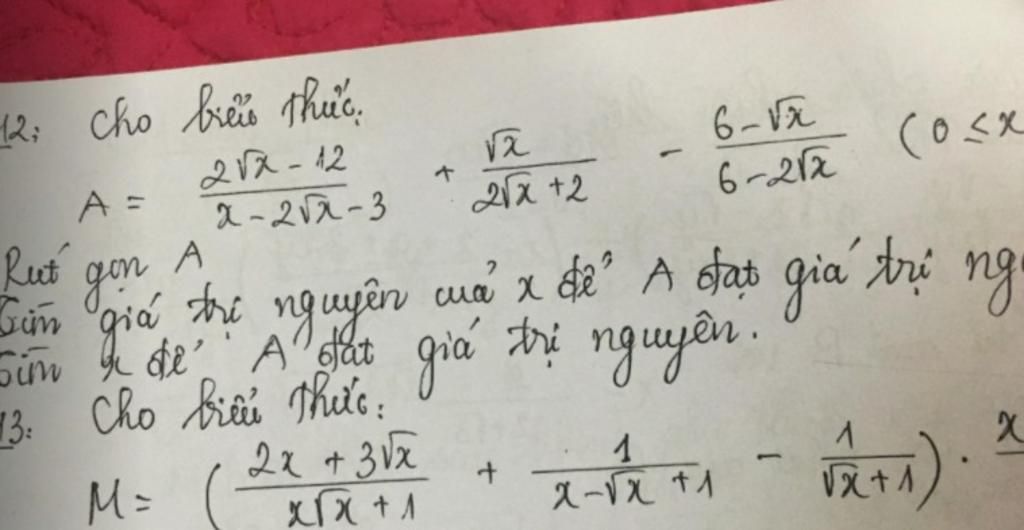 12: Cho biểu thức:
A = \frac{2\sqrt{x} - 12}{x - 2\sqrt{x} - 3} + \frac{\sqrt{x}}{2\sqrt{x} + 2} - \frac{6 - \sqrt{x}}{6 - 2\sqrt{x}} (0 ≤ x
Rút gọn A
Tìm giá trị nguyên của x để A đạt giá trị ng
Tìm x để A đạt giá trị nguyên.
13: Cho biểu thức:
M = ( \frac{2x + 3\sqrt{x}}{x\sqrt{x} + 1} + \frac{1}{x - \sqrt{x} + 1} - \frac{1}{\sqrt{x} + 1} ) . x